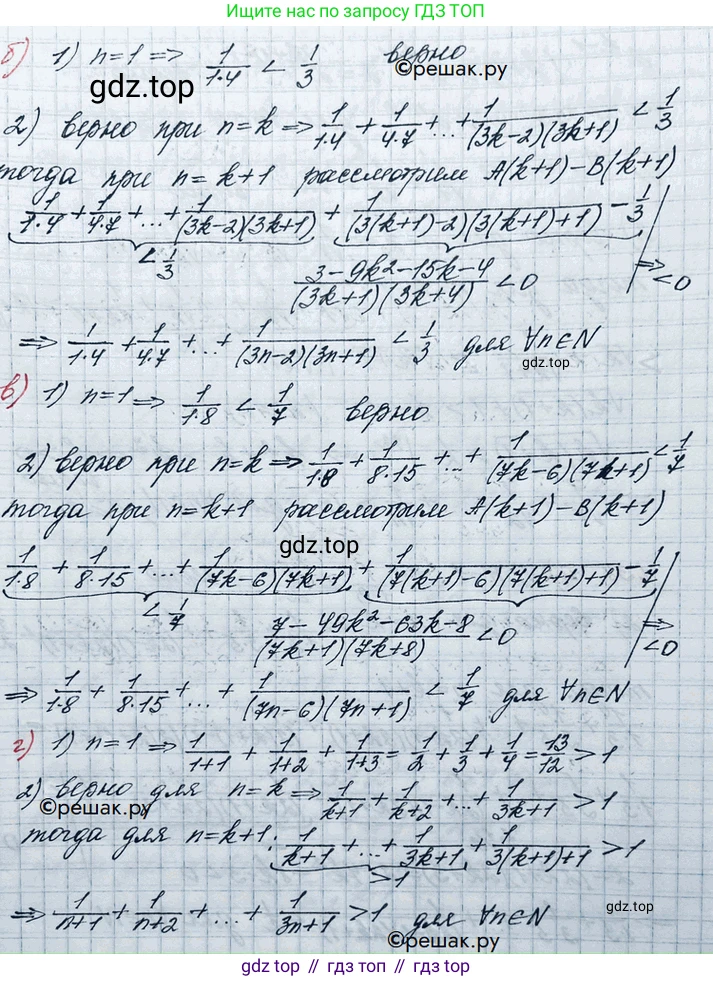 Ищите нас по запросу ГДЗ ТОП
б) 1) n=1 => 1/(1·4) < 1/3 верно
©решак.ру
gdz.top
2) верно при n=k => 1/(1·4) + 1/(4·7) + ... + 1/((3k-2)(3k+1)) < 1/3
тогда при n=k+1 рассмотрим A(k+1)-B(k+1)
1/(1·4) + 1/(4·7) + ... + 1/((3k-2)(3k+1)) + 1/((3(k+1)-2)(3(k+1)+1)) - 1/3 | =>
< 1/3 (3-9k²-15k-4)/((3k+1)(3k+4)) < 0 <0
=> 1/(1·4) + 1/(4·7) + ... + 1/((3n-2)(3n+1)) < 1/3 для ∀n∈N
gdz.top
в) 1) n=1 => 1/(1·8) < 1/7 верно
2) верно при n=k => 1/(1·8) + 1/(8·15) + ... + 1/((7k-6)(7k+1)) < 1/7
тогда при n=k+1 рассмотрим A(k+1)-B(k+1)
gdz.top
1/(1·8) + 1/(8·15) + ... + 1/((7k-6)(7k+1)) + 1/((7(k+1)-6)(7(k+1)+1)) - 1/7 | =>
< 1/7 (7-49k²-63k-8)/((7k+1)(7k+8)) < 0 <0
=> 1/(1·8) + 1/(8·15) + ... + 1/((7n-6)(7n+1)) < 1/7 для ∀n∈N
г) 1) n=1 => 1/(1+1) + 1/(1+2) + 1/(1+3) = 1/2 + 1/3 + 1/4 = 13/12 > 1
2) верно для n=k => 1/(k+1) + 1/(k+2) + ... + 1/(3k+1) > 1
©решак.ру
тогда для n=k+1: 1/(k+1) + ... + 1/(3k+1) + 1/(3(k+1)+1) > 1
>1
gdz.top
=> 1/(n+1) + 1/(n+2) + ... + 1/(3n+1) > 1 для ∀n∈N
©решак.ру
gdz top // гдз топ // gdz.top